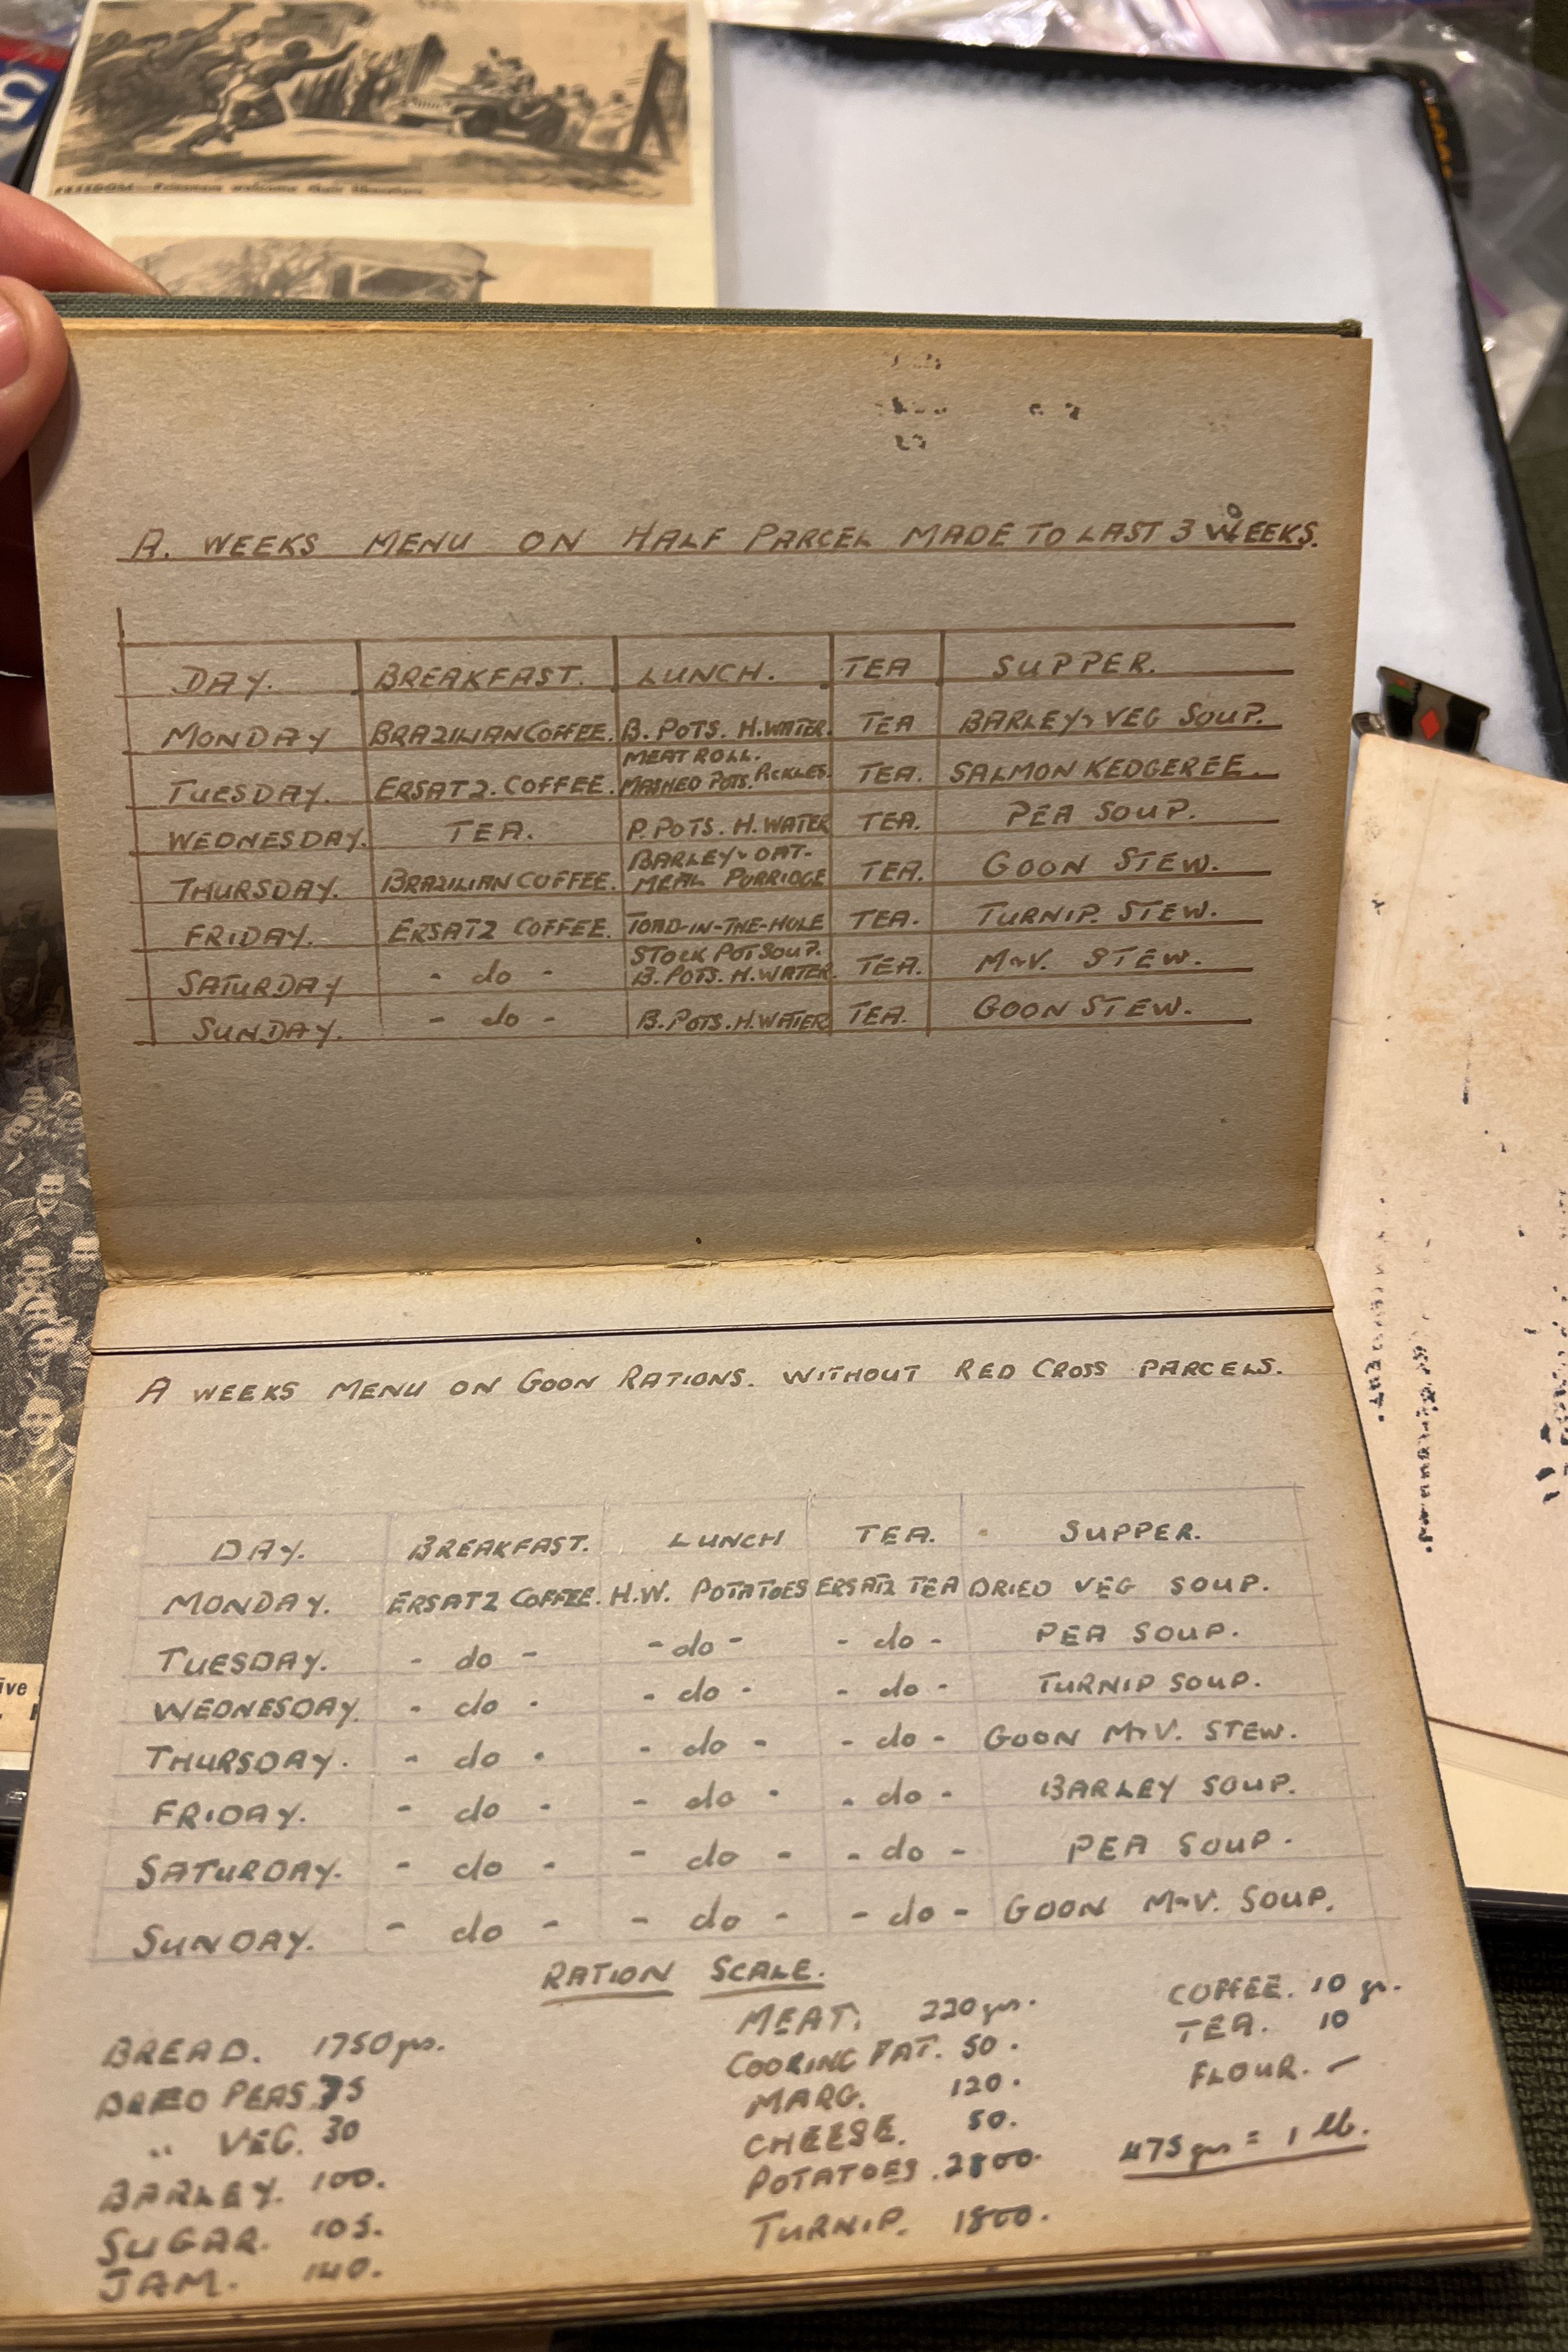 FREEDOM—Prisoners welcome their liberators.
A. WEEKS MENU ON HALF PARCEL MADE TO LAST 3 WEEKS.
DAY. BREAKFAST. LUNCH. TEA SUPPER.
MONDAY BRAZILIAN COFFEE. B. POTS. H. WATER. TEA BARLEY & VEG SOUP.
TUESDAY. ERSATZ. COFFEE. MEAT ROLL. MASHED POTS. PICKLES. TEA. SALMON KEDGEREE.
WEDNESDAY. TEA. P. POTS. H. WATER TEA. PEA SOUP.
THURSDAY. BRAZILIAN COFFEE. BARLEY & OAT- MEAL PORRIDGE TEA. GOON STEW.
FRIDAY. ERSATZ COFFEE. TOAD-IN-THE-HOLE TEA. TURNIP. STEW.
SATURDAY - do - STOCK POT SOUP. B. POTS. H. WATER. TEA. M&V. STEW.
SUNDAY. - do - B. POTS. H. WATER TEA. GOON STEW.
A WEEKS MENU ON GOON RATIONS. WITHOUT RED CROSS PARCELS.
DAY. BREAKFAST. LUNCH TEA. SUPPER.
MONDAY. ERSATZ COFFEE. H.W. POTATOES ERSATZ TEA DRIED VEG SOUP.
TUESDAY. - do - - do - - do - PEA SOUP.
WEDNESDAY. - do - - do - - do - TURNIP SOUP.
THURSDAY. - do - - do - - do - GOON M&V. STEW.
FRIDAY. - do - - do - - do - BARLEY SOUP.
SATURDAY. - do - - do - - do - PEA SOUP.
SUNDAY. - do - - do - - do - GOON M&V. SOUP.
RATION SCALE.
BREAD. 1750 gms.
DRIED PEAS. 75
" VEG. 30
BARLEY. 100.
SUGAR. 105.
JAM. 140.
MEAT. 220 gms.
COOKING FAT. 50.
MARG. 120.
CHEESE. 50.
POTATOES. 2800.
TURNIP. 1800.
COFFEE. 10 gs.
TEA. 10
FLOUR. —
475 gms = 1 lb.